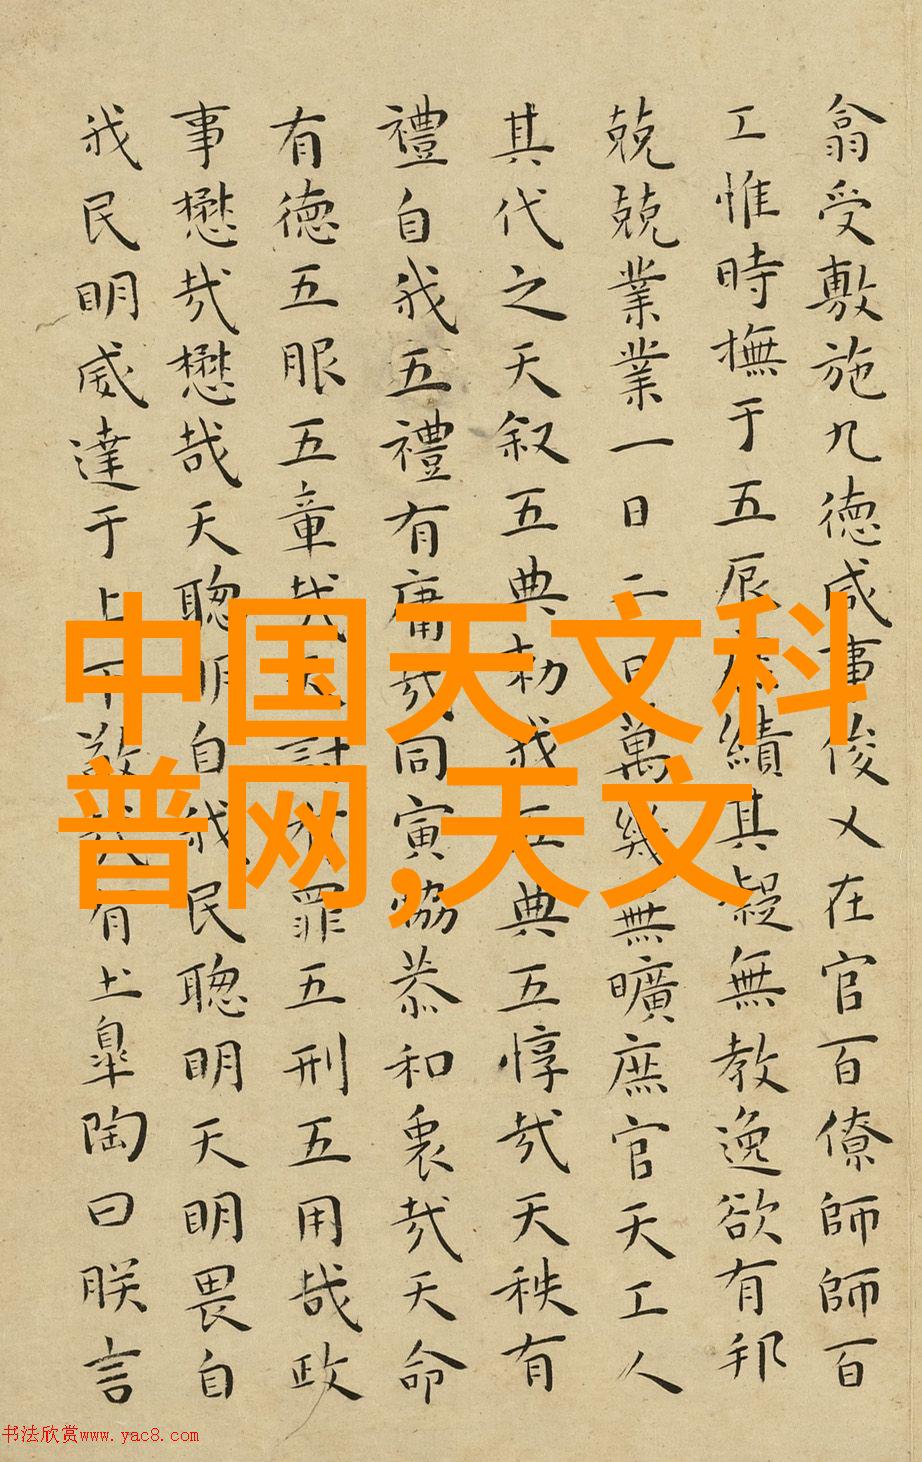 翕受敷施九德咸事俊乂在官百僚師師百
工惟時撫于五辰庶績其凝無教逸欲有邦
兢兢業業一日二日萬幾無曠庶官天工人
其代之天叙五典勑我五典五惇哉天秩有
禮自我五禮有庸哉同寅協恭和衷哉天命
有德五服五章哉天討有罪五刑五用哉政
事懋哉懋哉天聰明自我民聰明天明畏自
我民明威達于上下敬哉有土皐陶曰朕言
中国天文科
普网,天文
书法欣赏www.yac8.com